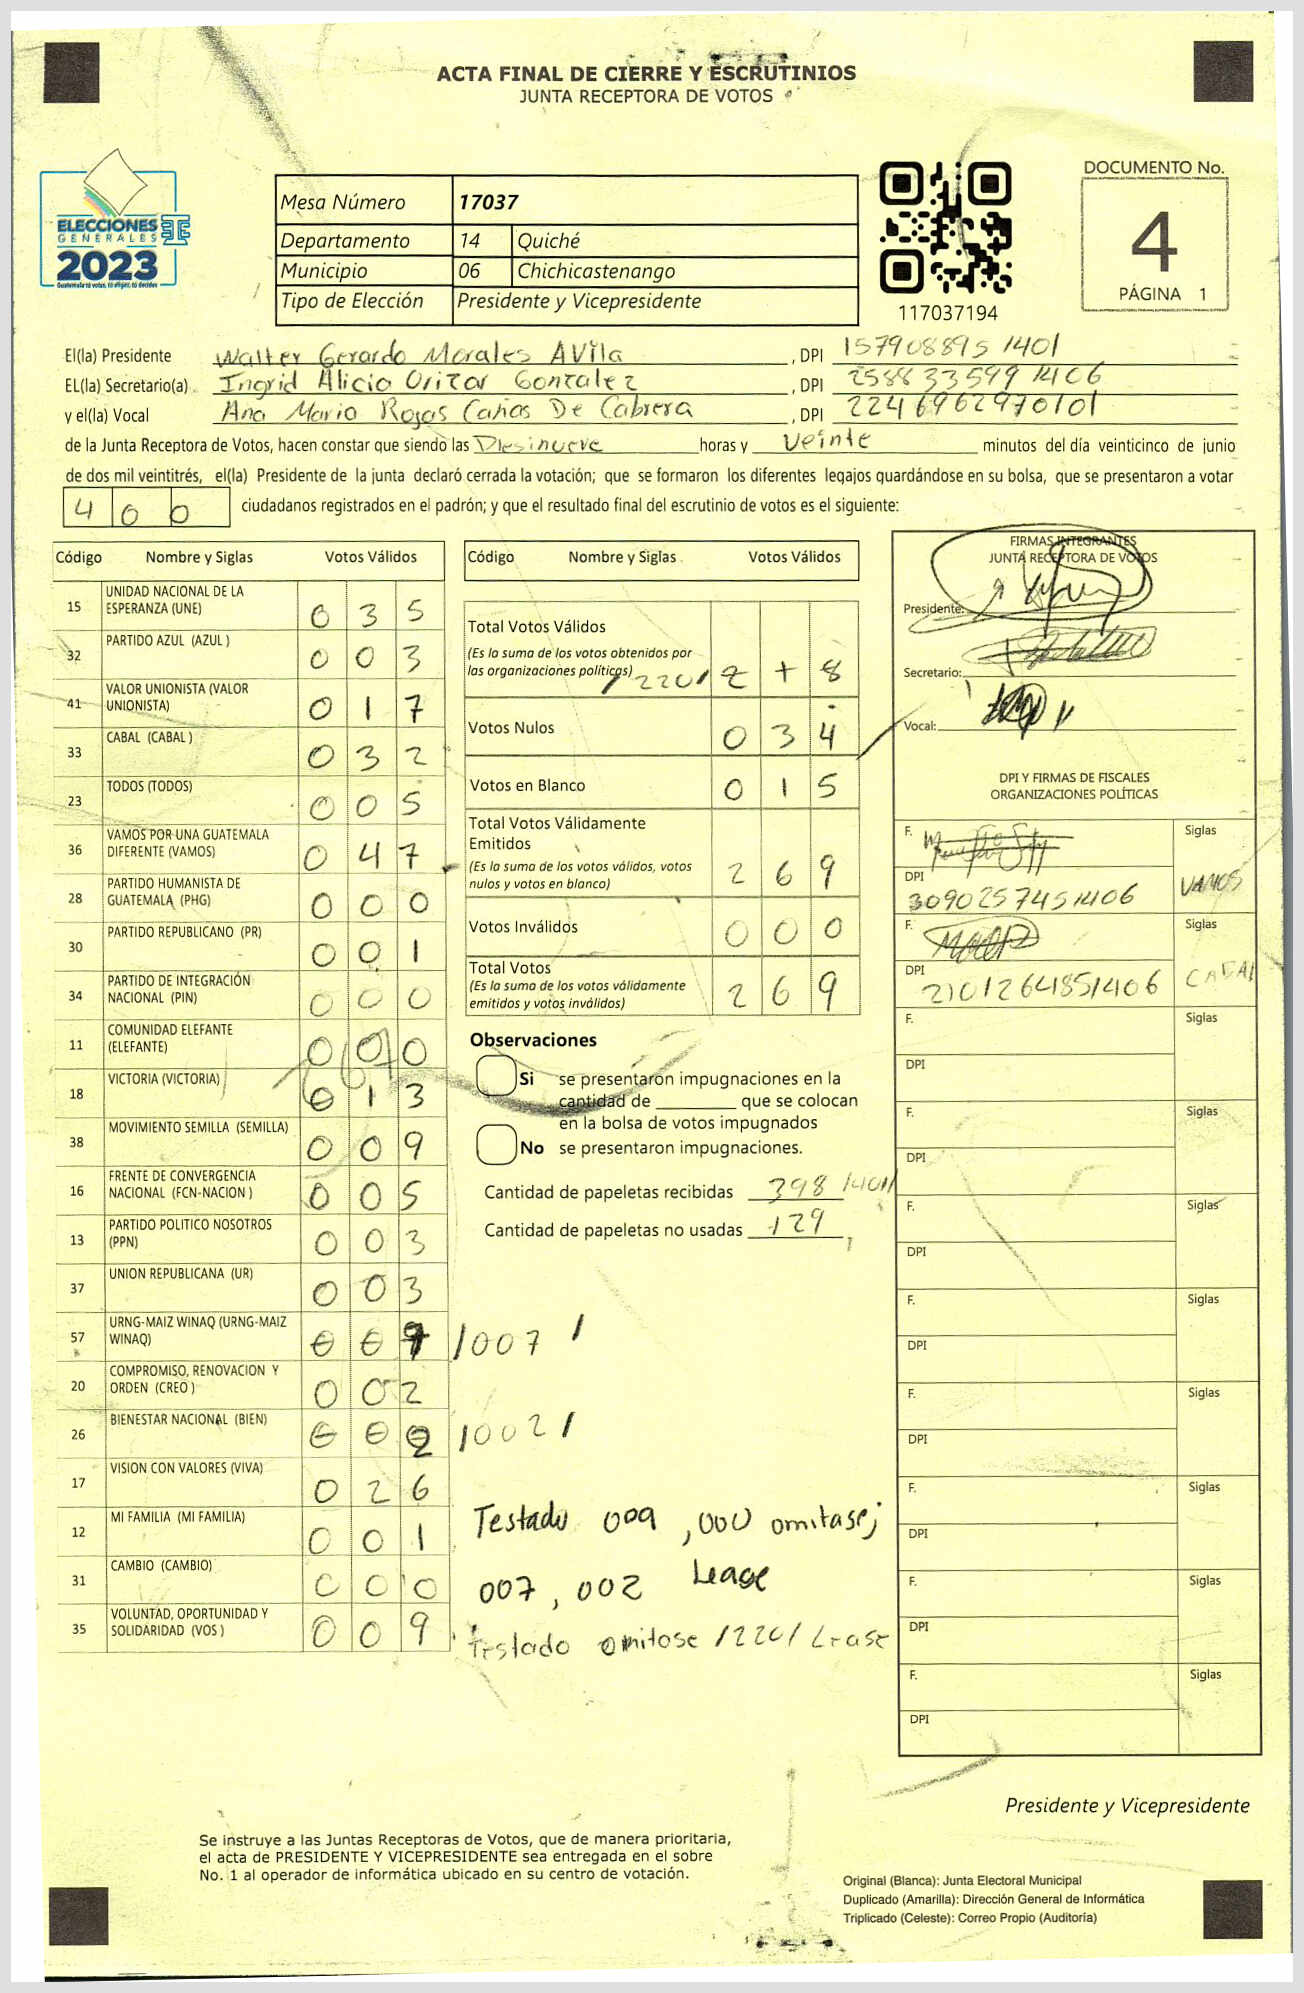 ACTA FINAL DE CIERRE Y ESCRUTINIOS
JUNTA RECEPTORA DE VOTOS
ELECCIONES
GENERALES
2023
Guatemala tú votas, tú eliges, tú decides
Mesa Número 17037
Departamento 14 Quiché
Municipio 06 Chichicastenango
Tipo de Elección Presidente y Vicepresidente
117037194
DOCUMENTO No.
4
PÁGINA 1
El(la) Presidente Walter Gerardo Morales AVila , DPI 1579088951401
EL(la) Secretario(a) Ingrid Alicia Orizar Gonzalez , DPI 2588335991406
y el(la) Vocal Ana Maria Rojas Cañas De Cabrera , DPI 2246962970101
de la Junta Receptora de Votos, hacen constar que siendo las Diesinueve horas y veinte minutos del día veinticinco de junio
de dos mil veintitrés, el(la) Presidente de la junta declaró cerrada la votación; que se formaron los diferentes legajos guardándose en su bolsa, que se presentaron a votar
400 ciudadanos registrados en el padrón; y que el resultado final del escrutinio de votos es el siguiente:
Código Nombre y Siglas Votos Válidos
15 UNIDAD NACIONAL DE LA ESPERANZA (UNE) 035
32 PARTIDO AZUL (AZUL ) 003
41 VALOR UNIONISTA (VALOR UNIONISTA) 017
33 CABAL (CABAL ) 032
23 TODOS (TODOS) 005
36 VAMOS POR UNA GUATEMALA DIFERENTE (VAMOS) 047
28 PARTIDO HUMANISTA DE GUATEMALA (PHG) 000
30 PARTIDO REPUBLICANO (PR) 001
34 PARTIDO DE INTEGRACIÓN NACIONAL (PIN) 000
11 COMUNIDAD ELEFANTE (ELEFANTE) 000
18 VICTORIA (VICTORIA) 013
38 MOVIMIENTO SEMILLA (SEMILLA) 009
16 FRENTE DE CONVERGENCIA NACIONAL (FCN-NACION ) 005
13 PARTIDO POLITICO NOSOTROS (PPN) 003
37 UNION REPUBLICANA (UR) 003
57 URNG-MAIZ WINAQ (URNG-MAIZ WINAQ) 009 /007/
20 COMPROMISO, RENOVACION Y ORDEN (CREO ) 002
26 BIENESTAR NACIONAL (BIEN) 002 /002/
17 VISION CON VALORES (VIVA) 026
12 MI FAMILIA (MI FAMILIA) 001
31 CAMBIO (CAMBIO) 000
35 VOLUNTAD, OPORTUNIDAD Y SOLIDARIDAD (VOS ) 009
Código Nombre y Siglas Votos Válidos
Total Votos Válidos
(Es la suma de los votos obtenidos por
las organizaciones políticas) /220/ 2 8
Votos Nulos 034
Votos en Blanco 015
Total Votos Válidamente
Emitidos
(Es la suma de los votos válidos, votos
nulos y votos en blanco) 269
Votos Inválidos 000
Total Votos
(Es la suma de los votos válidamente
emitidos y votos inválidos) 269
Observaciones
Si se presentaron impugnaciones en la
cantidad de ________ que se colocan
en la bolsa de votos impugnados
No se presentaron impugnaciones.
Cantidad de papeletas recibidas 398 /401/
Cantidad de papeletas no usadas 129
Testado 009 ,000 omitase;
007, 002 Lease
Testado omitose /220/ Lease
FIRMAS INTEGRANTES
JUNTA RECEPTORA DE VOTOS
Presidente:
Secretario:
Vocal:
DPI Y FIRMAS DE FISCALES
ORGANIZACIONES POLÍTICAS
F. Siglas
DPI 3090257451406 VAMOS
F. Siglas
DPI 2101264851406 CABAL
F. Siglas
DPI
F. Siglas
DPI
F. Siglas
DPI
F. Siglas
DPI
F. Siglas
DPI
F. Siglas
DPI
F. Siglas
DPI
F. Siglas
DPI
Presidente y Vicepresidente
Se instruye a las Juntas Receptoras de Votos, que de manera prioritaria,
el acta de PRESIDENTE Y VICEPRESIDENTE sea entregada en el sobre
No. 1 al operador de informática ubicado en su centro de votación.
Original (Blanca): Junta Electoral Municipal
Duplicado (Amarilla): Dirección General de Informática
Triplicado (Celeste): Correo Propio (Auditoría)